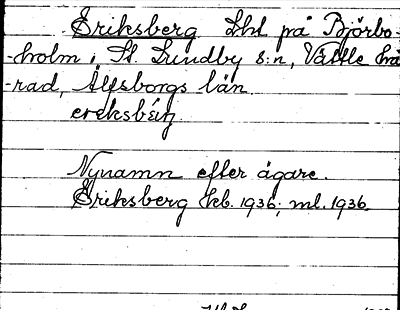 Eriksberg Lht på Björbo-
-holm i St. Lundby s:n, Vättle hä
-rad, Älfsborgs län.
Nynamn efter ägare.
Eriksberg kb. 1936; ml. 1936.